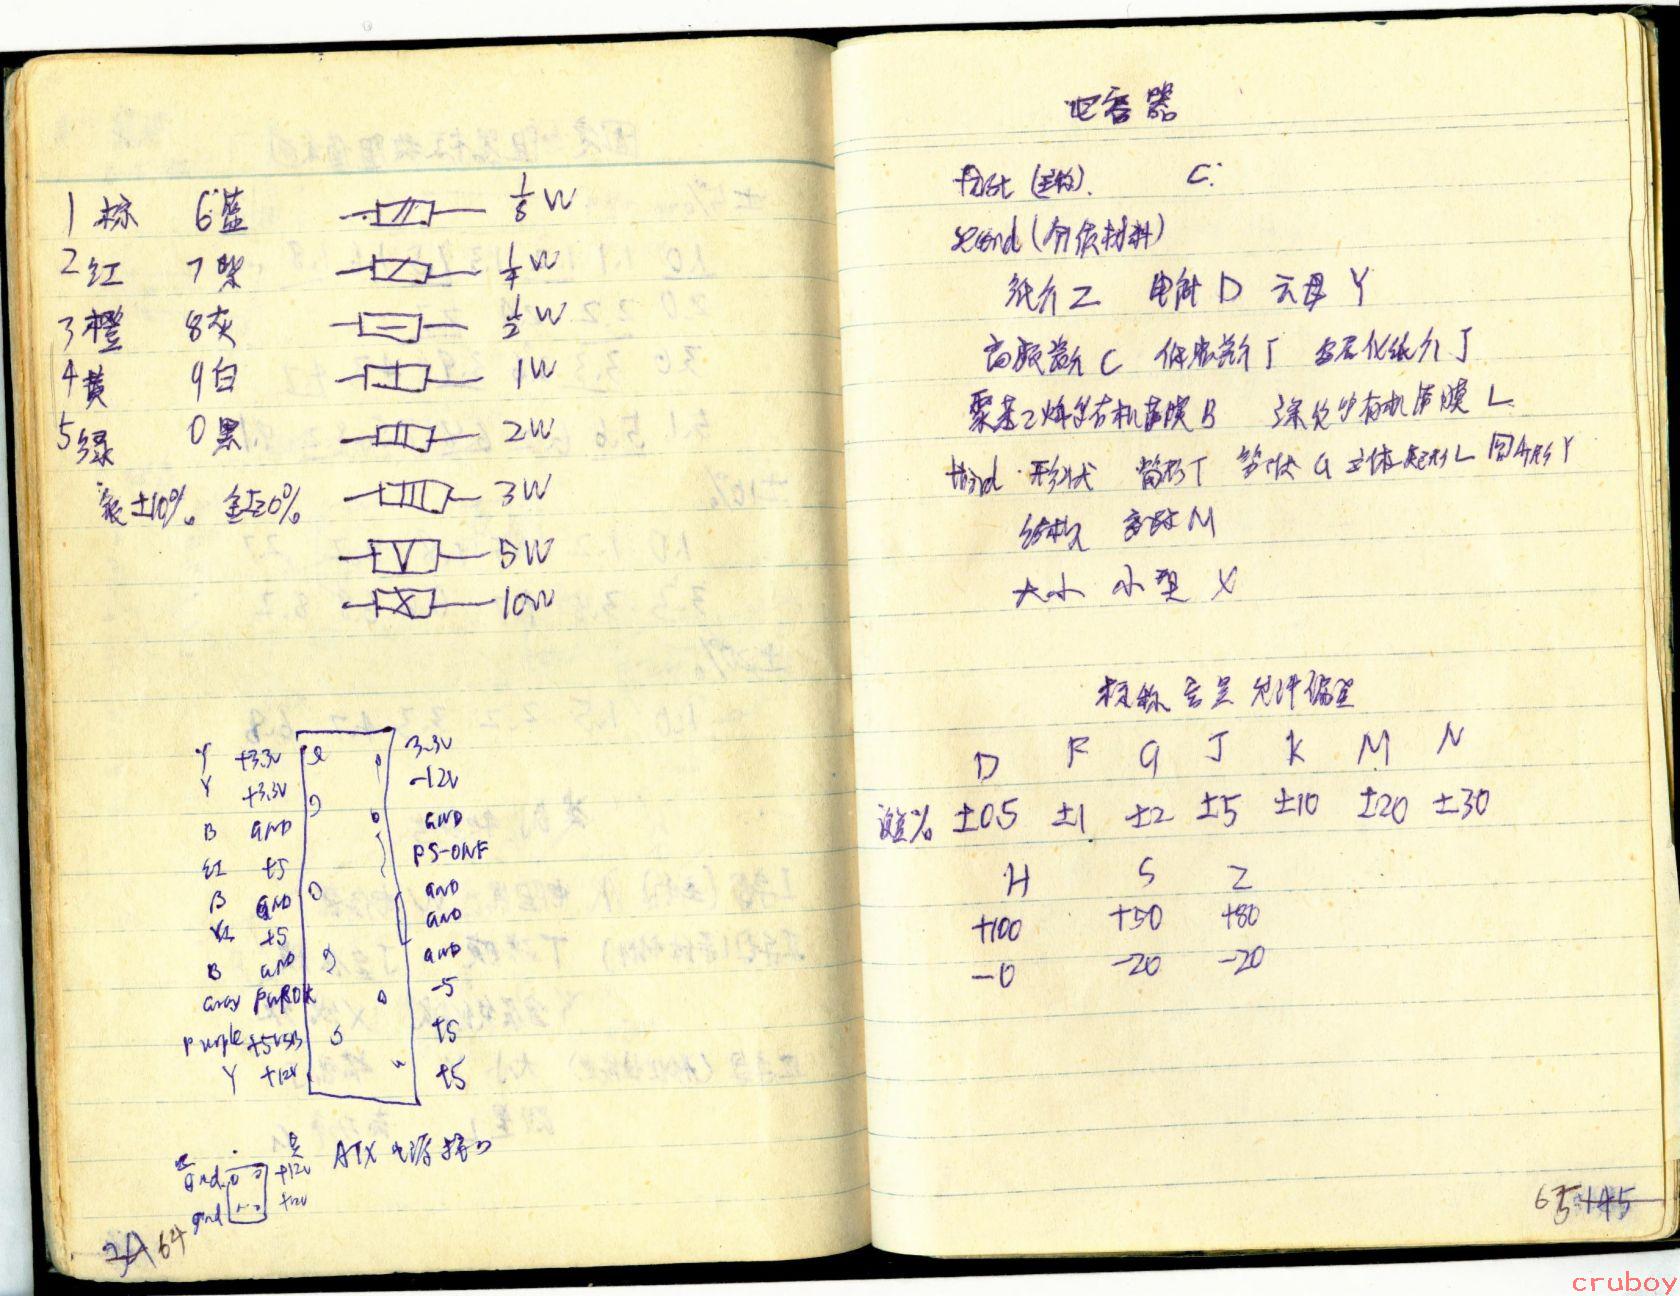 1 棕 6 蓝 1/8 W
2 红 7 紫 1/4 W
3 橙 8 灰 1/2 W
4 黄 9 白 1W
5 绿 0 黑 2W
银±10% 金±0% 3W
5W
10W
Y +3.3V 3.3V
Y +3.3V -12V
B GND GND
红 +5 PS-ONF
B GND GND
红 +5 GND
B GND GND
Gray PWROK -5
Purple +5VSB +5
Y +12V +5
ATX 电源接口
gnd +12V
gnd +12V
64
电容器
First (主称). C.
second (介质材料)
纸介 Z 电解 D 云母 Y
高频瓷介 C 低频瓷介 T 金属化纸介 J
聚苯乙烯等有机薄膜 B 涤纶等有机薄膜 L
third 形状 筒形 T 管状 G 立体矩形 L 圆片形 Y
结构 密封 M
大小 小型 X
标称容量允许偏差
D F G J K M N
误差% ±0.5 ±1 ±2 ±5 ±10 ±20 ±30
H S Z
+100 +50 +80
-0 -20 -20
65 145
cruboy